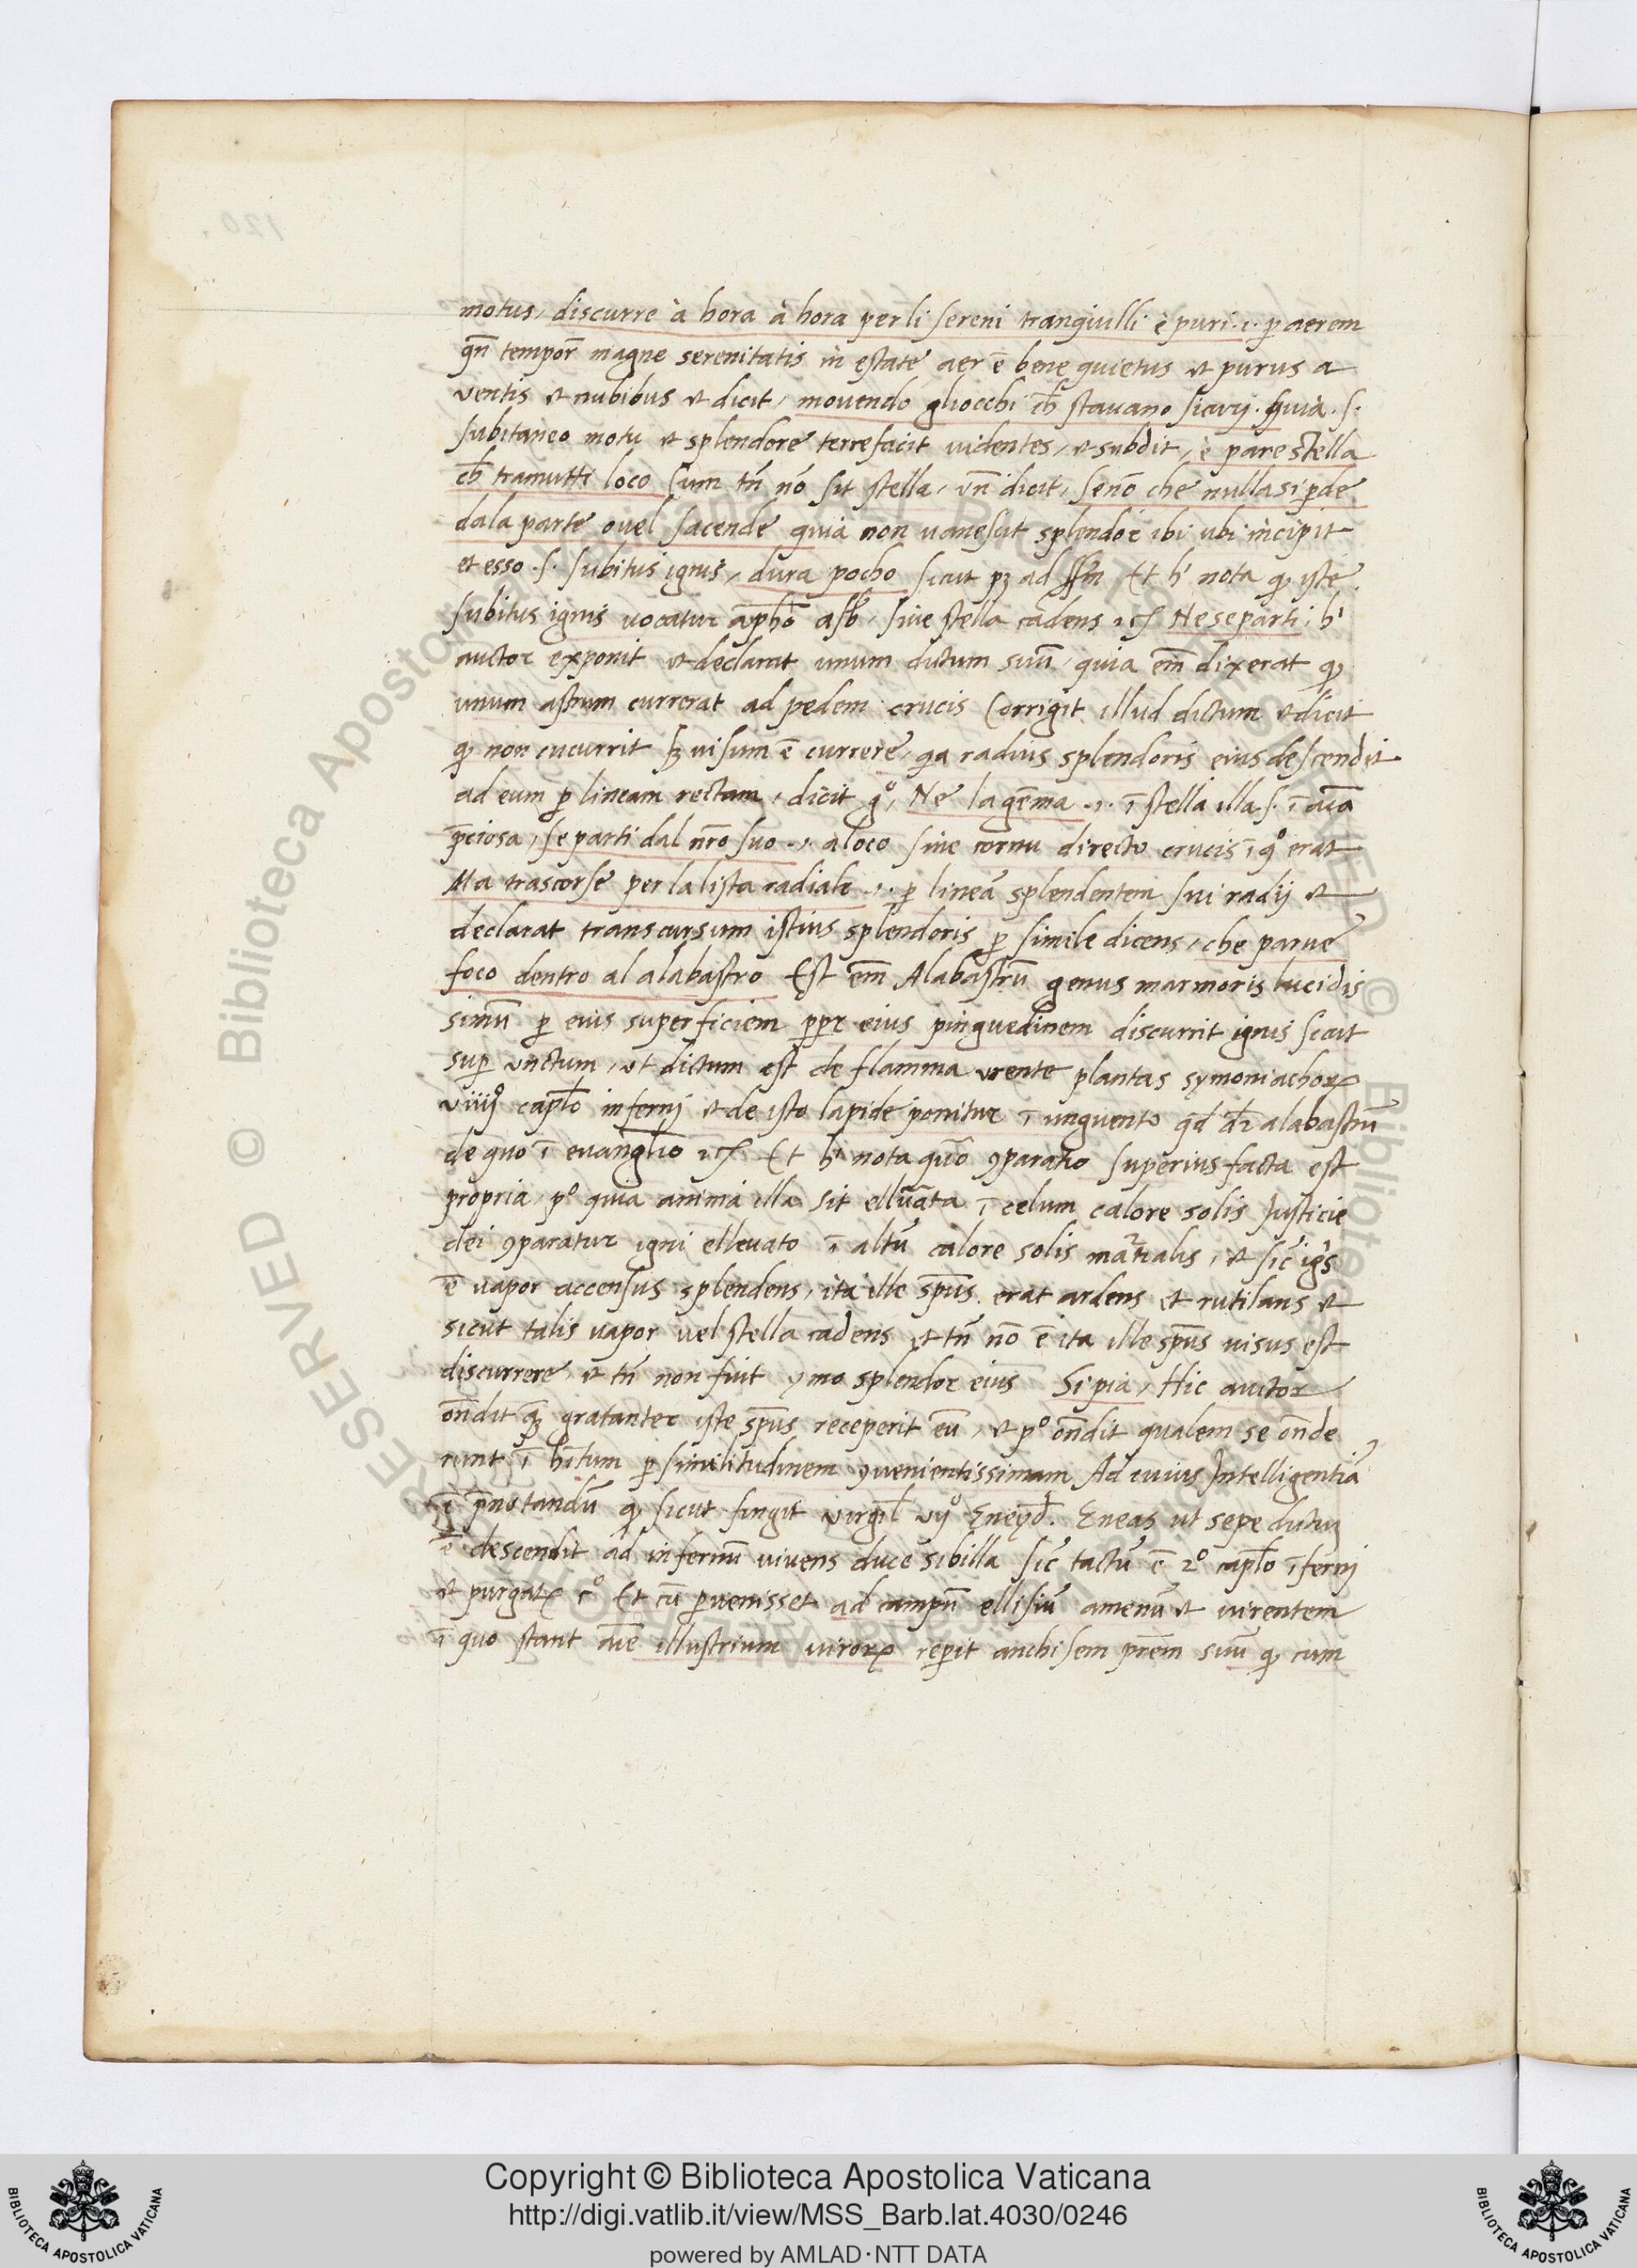 120.
motus, discurre à hora à hora per li sereni tranquilli è puri .i. p̱ aerem
qn̄ tempor̄ magne serenitatis in estate aer ē bene quietus et purus a
ventis et nubibus et dicit, movendo gliocchi ch̄ stavano sicurj. quia .s.
subitaneo motu et splendore terrefacit videntes, et subdit, è pare stella
ch̄ tramutti loco Cum tn̄ nō sit stella, vn̄ dicit, senō che nulla si ꝑde
dala parte ovel sacende quia non vanescit splendor ibi ubi incipit
et esso .s. subitus ignis, dura pocho sicut pꝫ ad Et h' nota qꝫ iste
subitus ignis vocatur asub, sive stella cadens Ne se parti, h'
auctor exponit et declarat unum dictum suū, quia em̄ dixerat qꝫ
unum astrum currerat ad pedem crucis Corrigit illud dictum et dicit
qꝫ non cucurrit sꝫ visum ē currere, qa radius splendoris eius descendit
ad eum ꝑ lineam rectam, dicit gº, Ne la gēma .i. ī stella illa .s. ī aīa
p̄ciosa, se parti dal nr̄o suo .i. a loco sive cornu directo crucis ī qº erat
Ma trascorse per la lista radiale .i. ꝑ lineā splendentem sui radij et
declarat transcursum istius splendoris ꝑ simile dicens, che parve
foco dentro al alabastro Est em̄ Alabastrū genus marmoris lucidis
simū ꝑ eius superficiem ppr̄ eius pinguedinem discurrit ignis sicut
suꝑ unctum, ut dictum est de flamma urente plantas symoniachoꝝ
viiijº capl̄o infernj et de isto lapide ponitur ī unguento qd̄ dr̄ alabastrū
de quo ī evangl̄io Et h' nota quō ꝯparatio superius facta est
propria, pº quia anima illa sit ellevata ī celum calore solis Justicie
dei ꝯparatur igni ellevato ī altū calore solis mat̄ialis, et sic̄ iḡs
ē vapor accensus splendens, ita ille sp̄us erat ardens et rutilans et
sicut talis vapor vel stella cadens et tn̄ nō ē ita ille sp̄us visus est
discurrere, et tn̄ non fuit ymo splendor eius Si pia, Hic auctor
on̄dit qꝫ gratanter iste sp̄us receperit eū, et pº on̄dit qualem se on̄de
runt ī h̄itum ꝑ similitudinem ꝯvenientissimam Ad cuius Intelligentiā
ē p̄notandū qꝫ sicut fingit virgil̄ vjº Eneyd̄. Eneas ut sepe dictū
ē descendit ad infernū vivens duce sibilla sic̄ tactū ē 2º capl̄o īfernj
et purgatꝝ Et cū ꝑvenisset ad campū ellisiū amenū et virentem
ī quo stant aīe illustrium viroꝝ reꝑit anchisem pr̄em suū qꝫ cum
© Biblioteca Apostolica Vaticana
Copyright © Biblioteca Apostolica Vaticana
http://digi.vatlib.it/view/MSS_Barb.lat.4030/0246
powered by AMLAD·NTT DATA
BIBLIOTECA APOSTOLICA VATICANA
BIBLIOTECA APOSTOLICA VATICANA